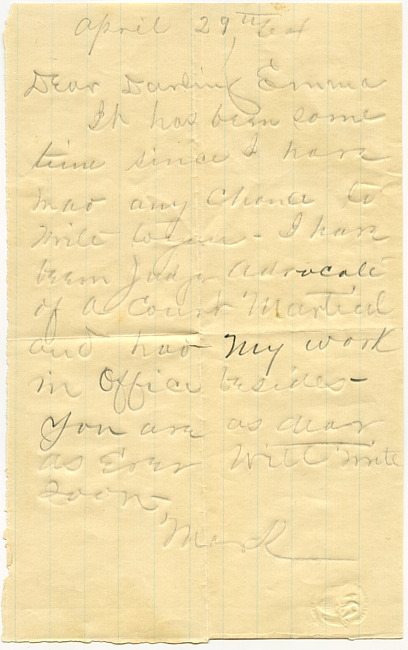 April 29th 64
Dear Darling Emma
It has been some
time since I have
had any chance to
write to you - I have
been Judge Advocate
of a Court Martial
and had my work
in Office besides -
You are as dear
as Ever Will write
soon
Mark